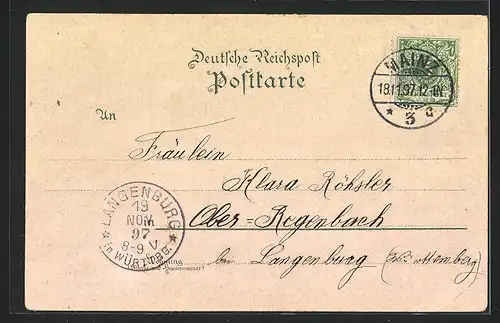 Deutsche Reichspost
Postkarte
MAINZ
18.11.97.12-1N.
* 3 d
An
Fräulein
Klara Röhsler
Ober-Regenbach
bei Langenburg (Württemberg)
LANGENBURG
19
NOV
97
8-9 V
in WÜRTTBG.
Wohnung